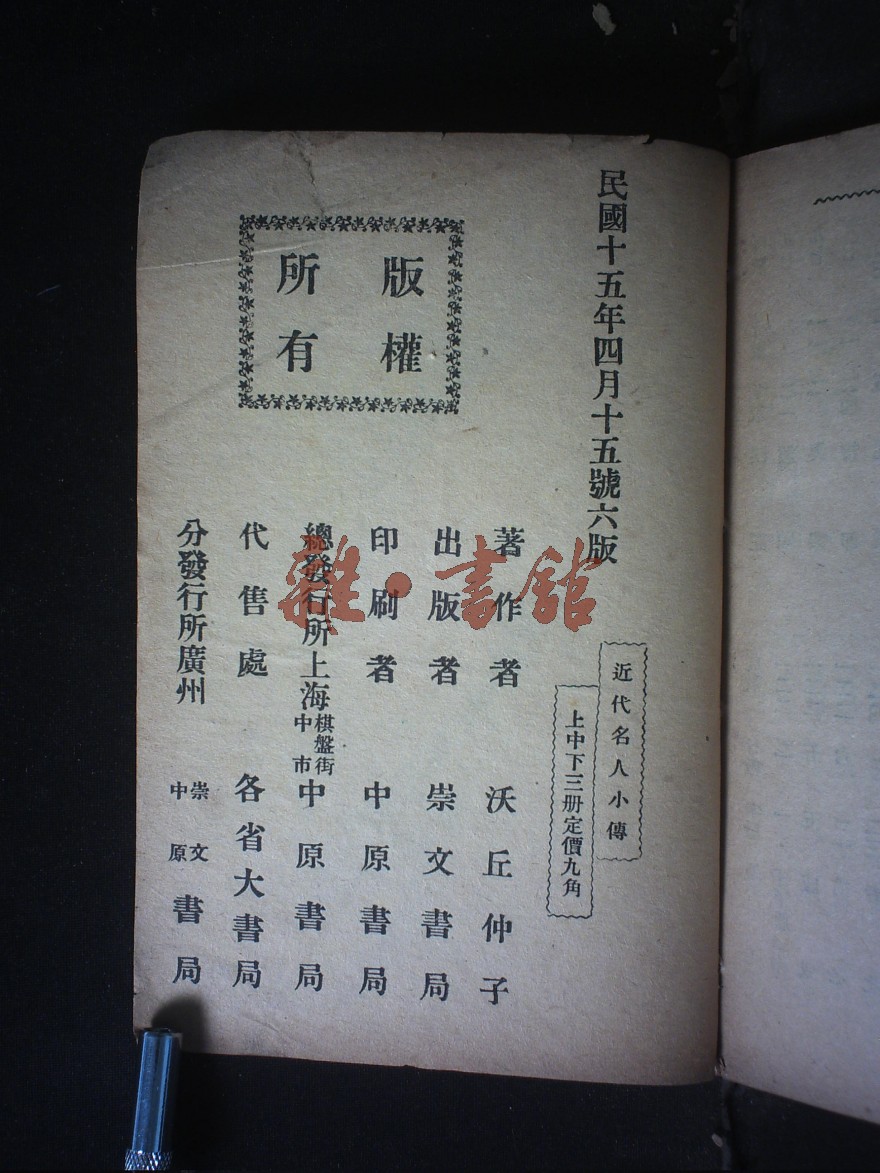 民國十五年四月十五號六版
近代名人小傳
上中下三册定價九角
著作者 沃丘仲子
出版者 崇文書局
印刷者 中原書局
總發行所上海棋盤街中市中原書局
代售處 各省大書局
分發行所廣州 崇文中原書局
版權
所有
雜·書館